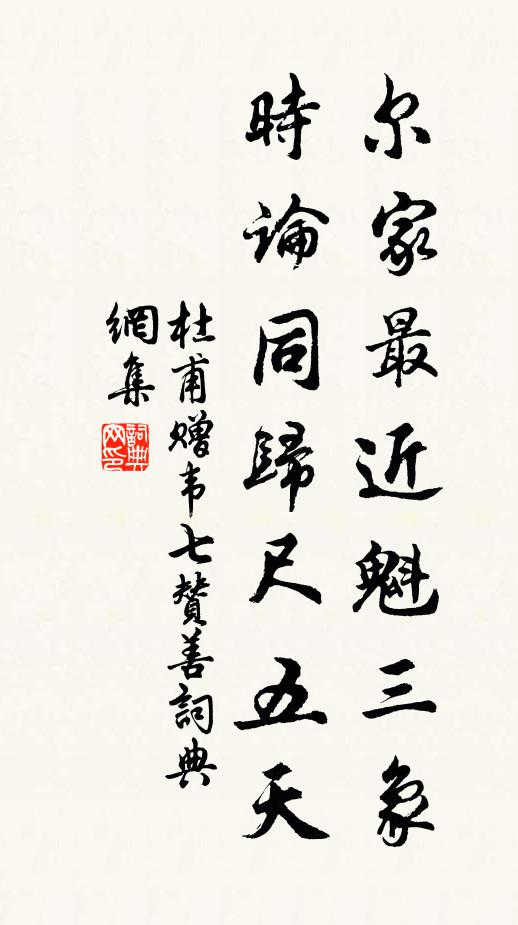 尔家最近魁三象
時論同歸尺五天
杜甫赠韦七贊善詞典
網集
詞典
网印